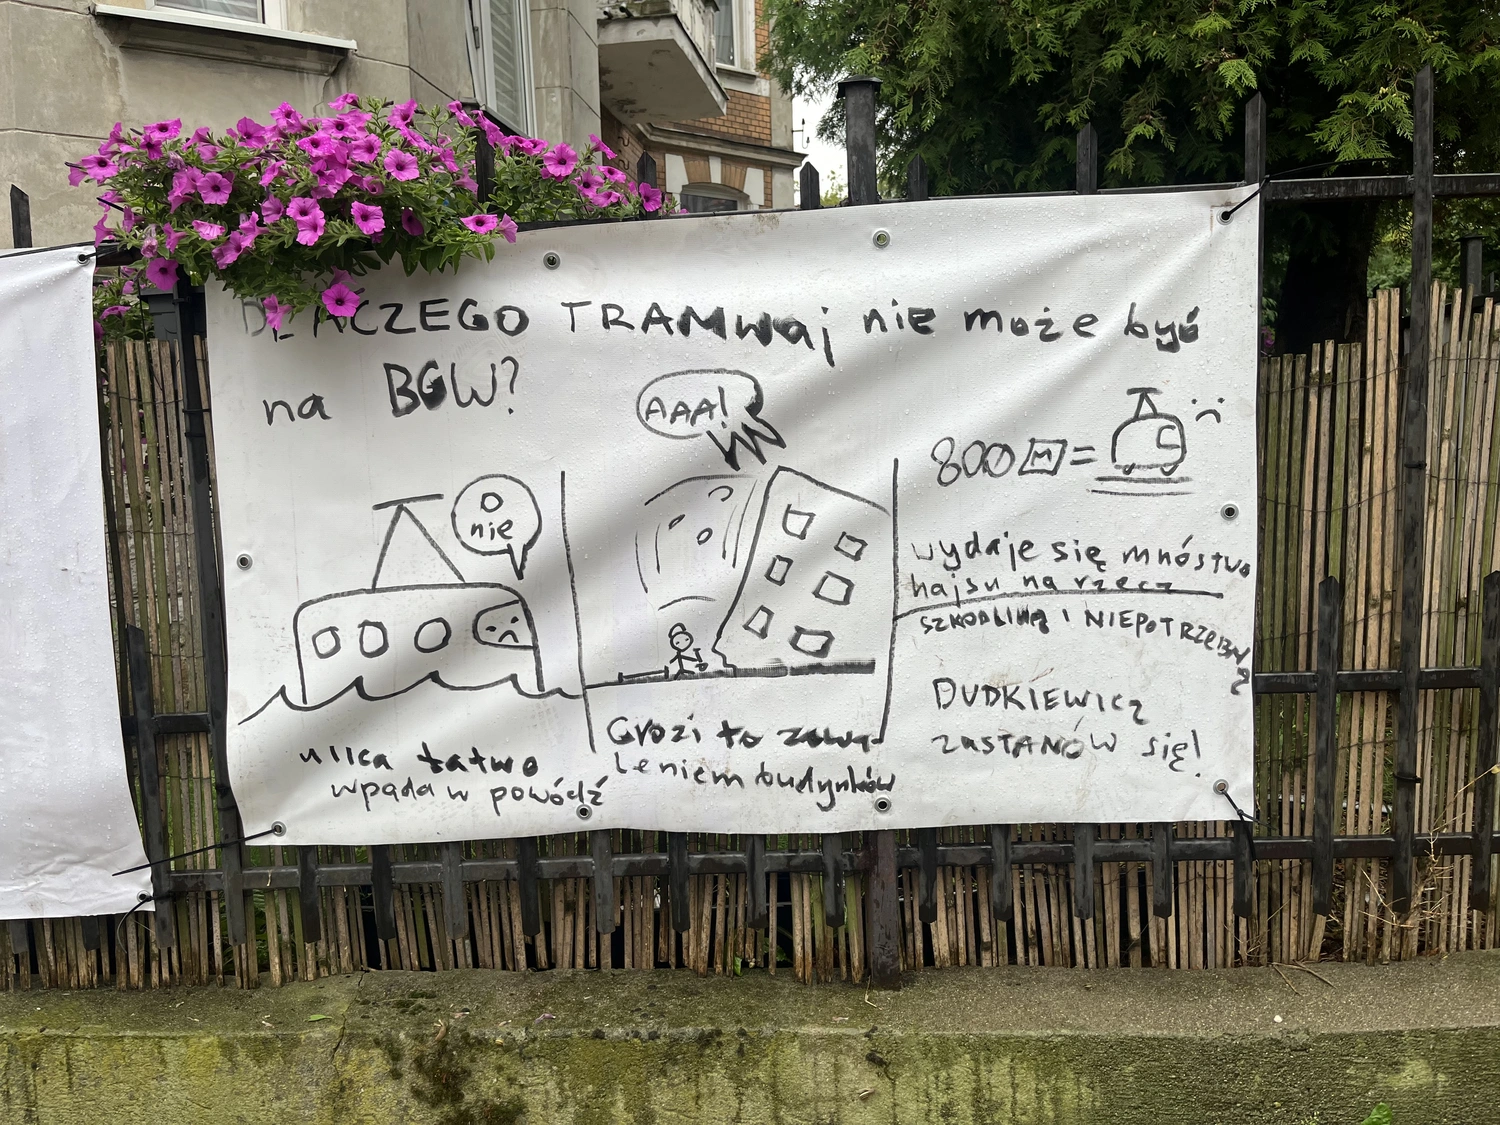 DLACZEGO TRAMWaj nie może być
na BGW?
O
nie
ulica łatwo
wpada w powódź
AAA!
Grozi to zawa-
leniem budynków
800 M =
wydaje się mnóstwo
hajsu na rzecz
SZKODLIWĄ I NIEPOTRZEBNĄ
DUDKIEWICZ
ZASTANÓW się!